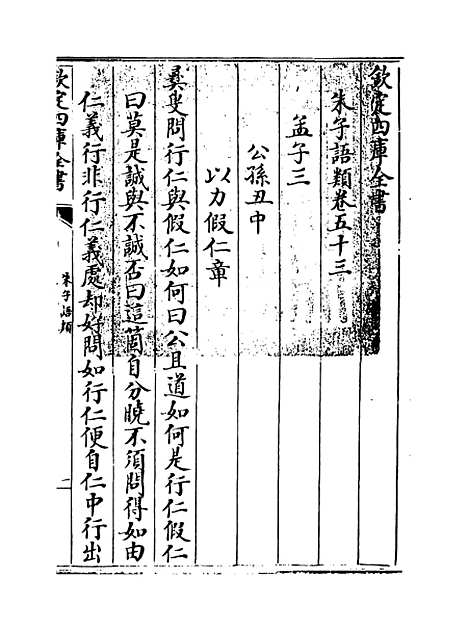 欽定四庫全書
朱子語類卷五十三
孟子三
公孫丑中
以力假仁章
彛叟問行仁與假仁如何曰公且道如何是行仁假仁
曰莫是誠與不誠否曰這箇自分曉不須問得如由
仁義行非行仁義處却好問如行仁便自仁中行出
欽定四庫全書
朱子語類
一